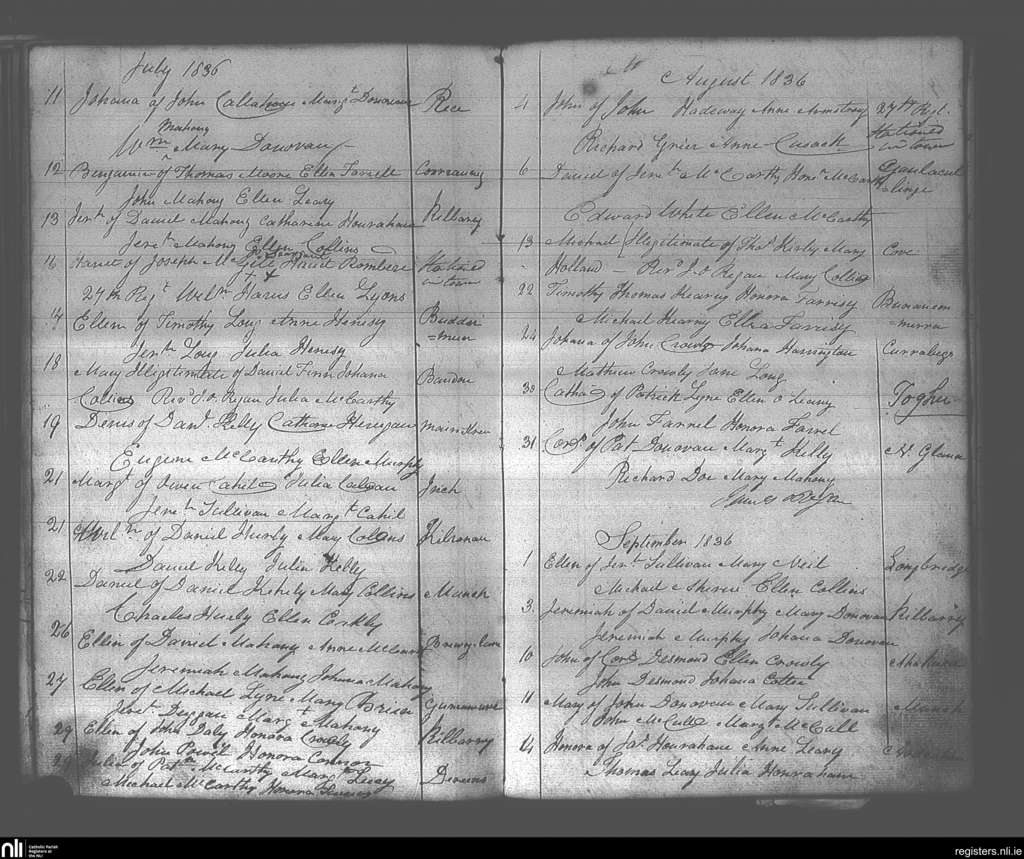 July 1836
11 Johana of John Callahane Margt Donovan Rice
Mahony
Wm Mary Donovan
12 Bengamin of Thomas Moore Ellen Farrell
John Mahony Ellen Leary
13 Jerh of Daniel Mahony Catharine Hourahane Kilbarry
Jerh Mahony Ellen Collins
16 of Joseph Stationed
in town
27th Regt Wilm Harris Ellen Lyons
Ellen of Timothy Long Anne Henesy
Jerh Long Julia Henesy
18 Mary Illigitimate of Daniel Finn Johana Bandon
Collins Revd J. O Regan Julia McCarthy
19 Denis of Danl Kelly Catharine
Eugene McCarthy Ellen Murphy
21 Margt of Owen Cahill Julia Inch
Jerh Sullivan Margt Cahil
21 Wilm of Daniel Hurly Mary Collins Kilronan
Daniel Kelly Julia Kelly
22 Daniel of Daniel Mary Collins Manch
Charles Hurly Ellen
26 Ellen of Daniel Mahony Anne
Jeremiah Mahony Johana Mahony
27 Ellen of Michael Lyne Mary Brien
Jerh Duggan Margt Mahony
29 Ellen of John Daly Honora Crowly Kilbarry
John Honora Connor
29 Julia of Patk McCarthy Margt Leary
Michael McCarthy Honora
August 1836
4 John of John Hadeway Anne Armstrong 27th Regt
Stationed
in town
Richard Grier Anne Cusack
6 Daniel of Jerh McCarthy Honr McCarthy
Edward White Ellen McCarthy
13 Michael Illigitimate of Thos Kirby Mary Cove
Holland – Revd J. O Regan Mary Collins
22 Timothy Thomas Kearny Honora Farrisy
Michael Kearny Ellen Farrisy
24 Johana of John Crowly Johana Harrington Curraboga
Mathew Crowly Jane Long
30 Catha of Patrick Lyne Ellen O Leary Togher
John Farrel Honora Farrel
31 Cors of Pat Donovan Margt Kelly
Richard Doe Mary Mahony
James O Regan
September 1836
1 Ellen of Jerh Sullivan Mary Neil Longbridge
Michael Ellen Collins
3 Jeremiah of Daniel Murphy Mary Donovan Kilbarry
Jeremiah Murphy Johana Donovan
10 John of Cors Desmond Ellen Crowly
John Desmond Johana Cotter
11 Mary of John Donovan Mary Sullivan Manch
John McCall Margt McCall
14 Honora of Jas Hourahane Anne Leary
Thomas Leary Julia Hourahane
nli
Catholic Parish
Registers at
the NLI
registers.nli.ie